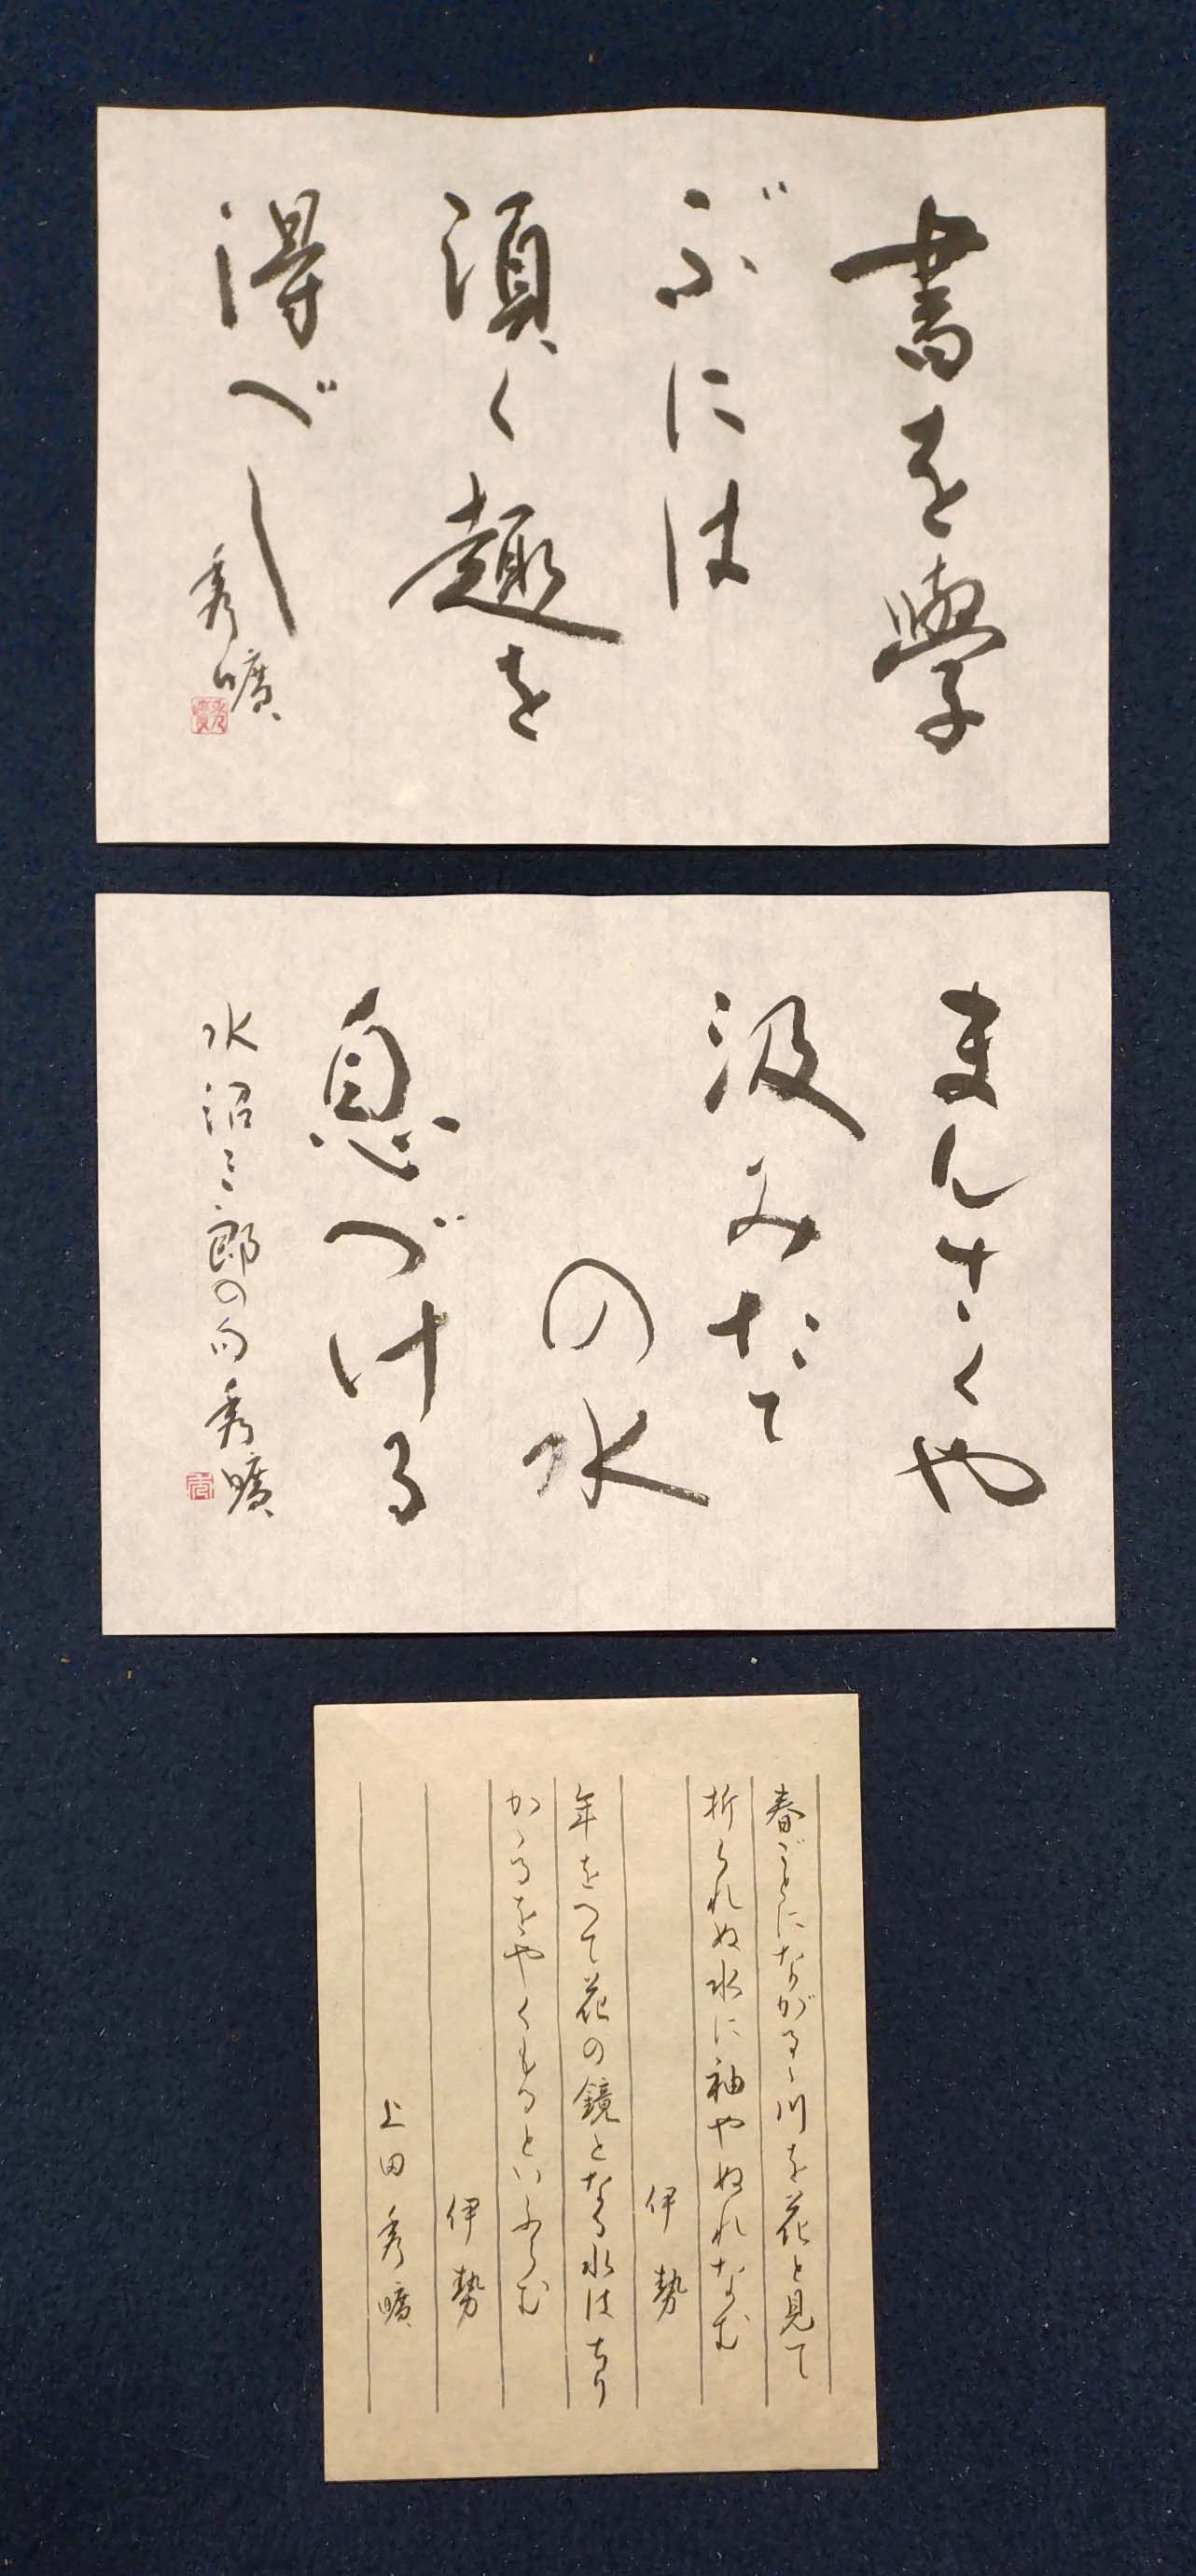 書を學
ぶには
須く趣を
得べし
秀曠
まんさくや
汲みたて
の水
息づける
水沼三郎の句 秀曠
春ごとにながるゝ川を花と見て
折られぬ水に袖やぬれなむ
伊勢
年をへて花の鏡となる水はちり
かゝるをやくもるといふらむ
伊勢
上田秀曠